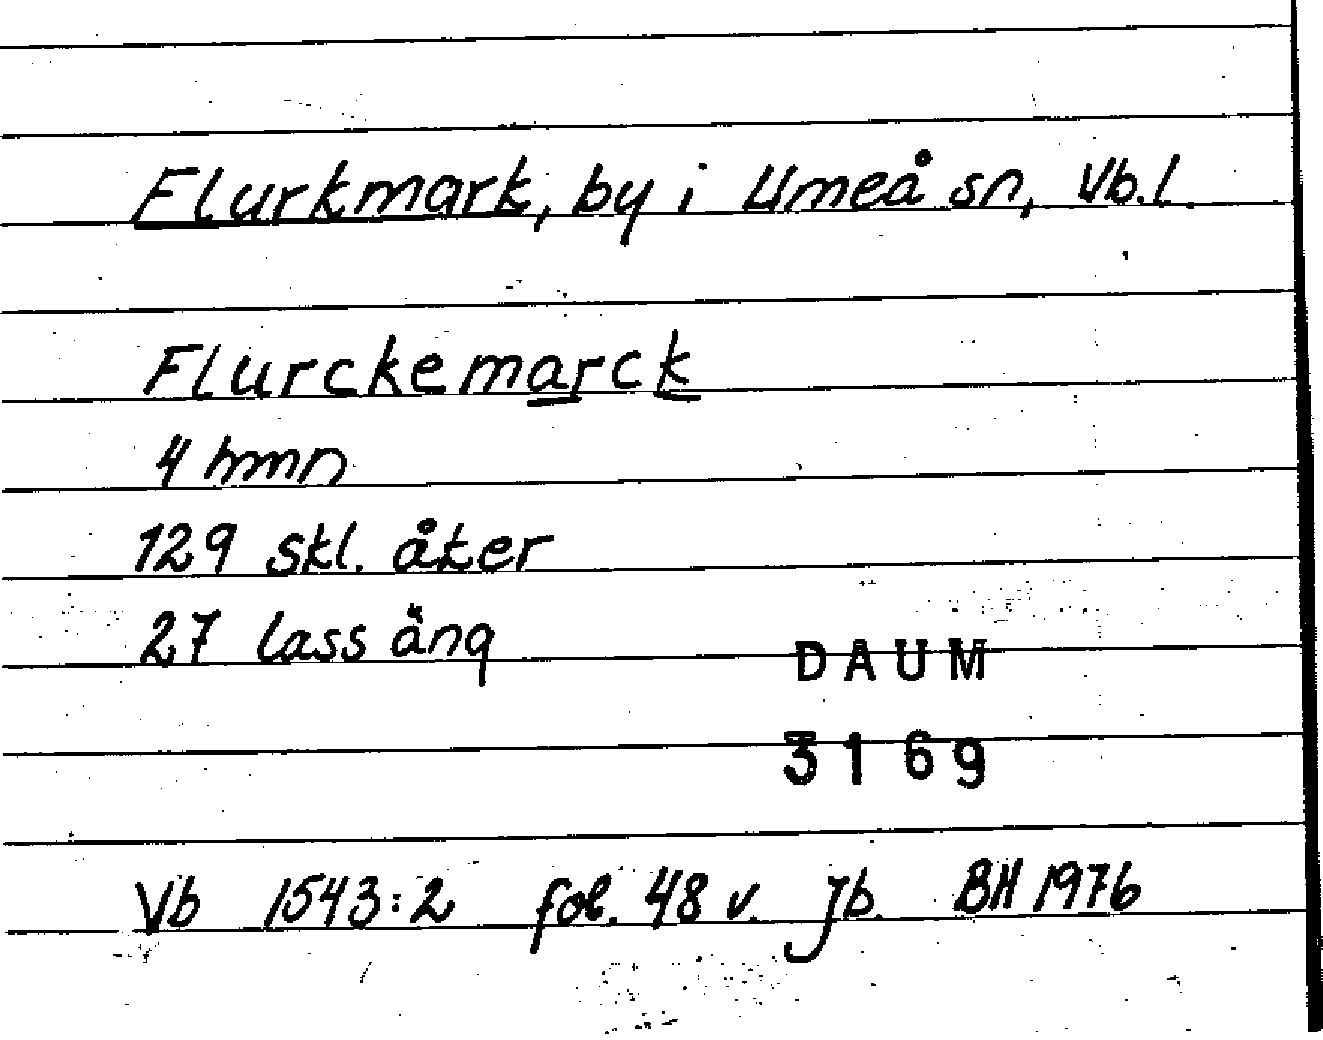 Flurkmark, by i Umeå sn, Vb.l.
Flurckemarck
4 hmn
129 skl. åker
27 lass äng
DAUM
3169
Vb 1543:2 fol. 48 v. Jb. BH 1976